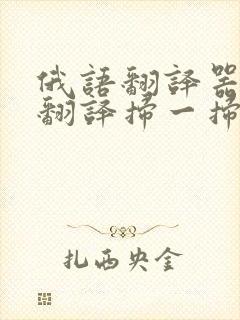 俄語翻譯器
翻譯掃一掃
扎西央金